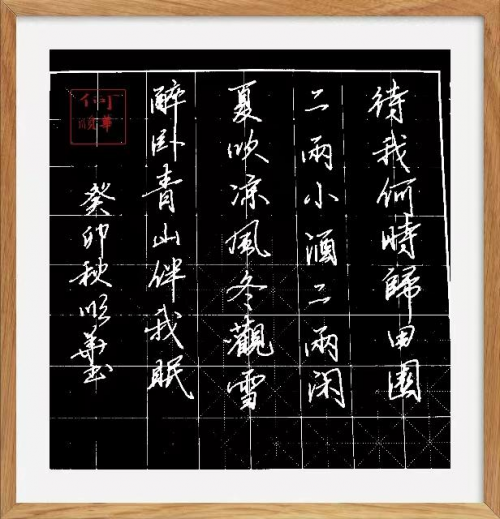 待我何時歸田園
二兩小酒二兩闲
夏吹凉風冬觀雪
醉卧青山伴我眠
癸卯秋順華书
何順華